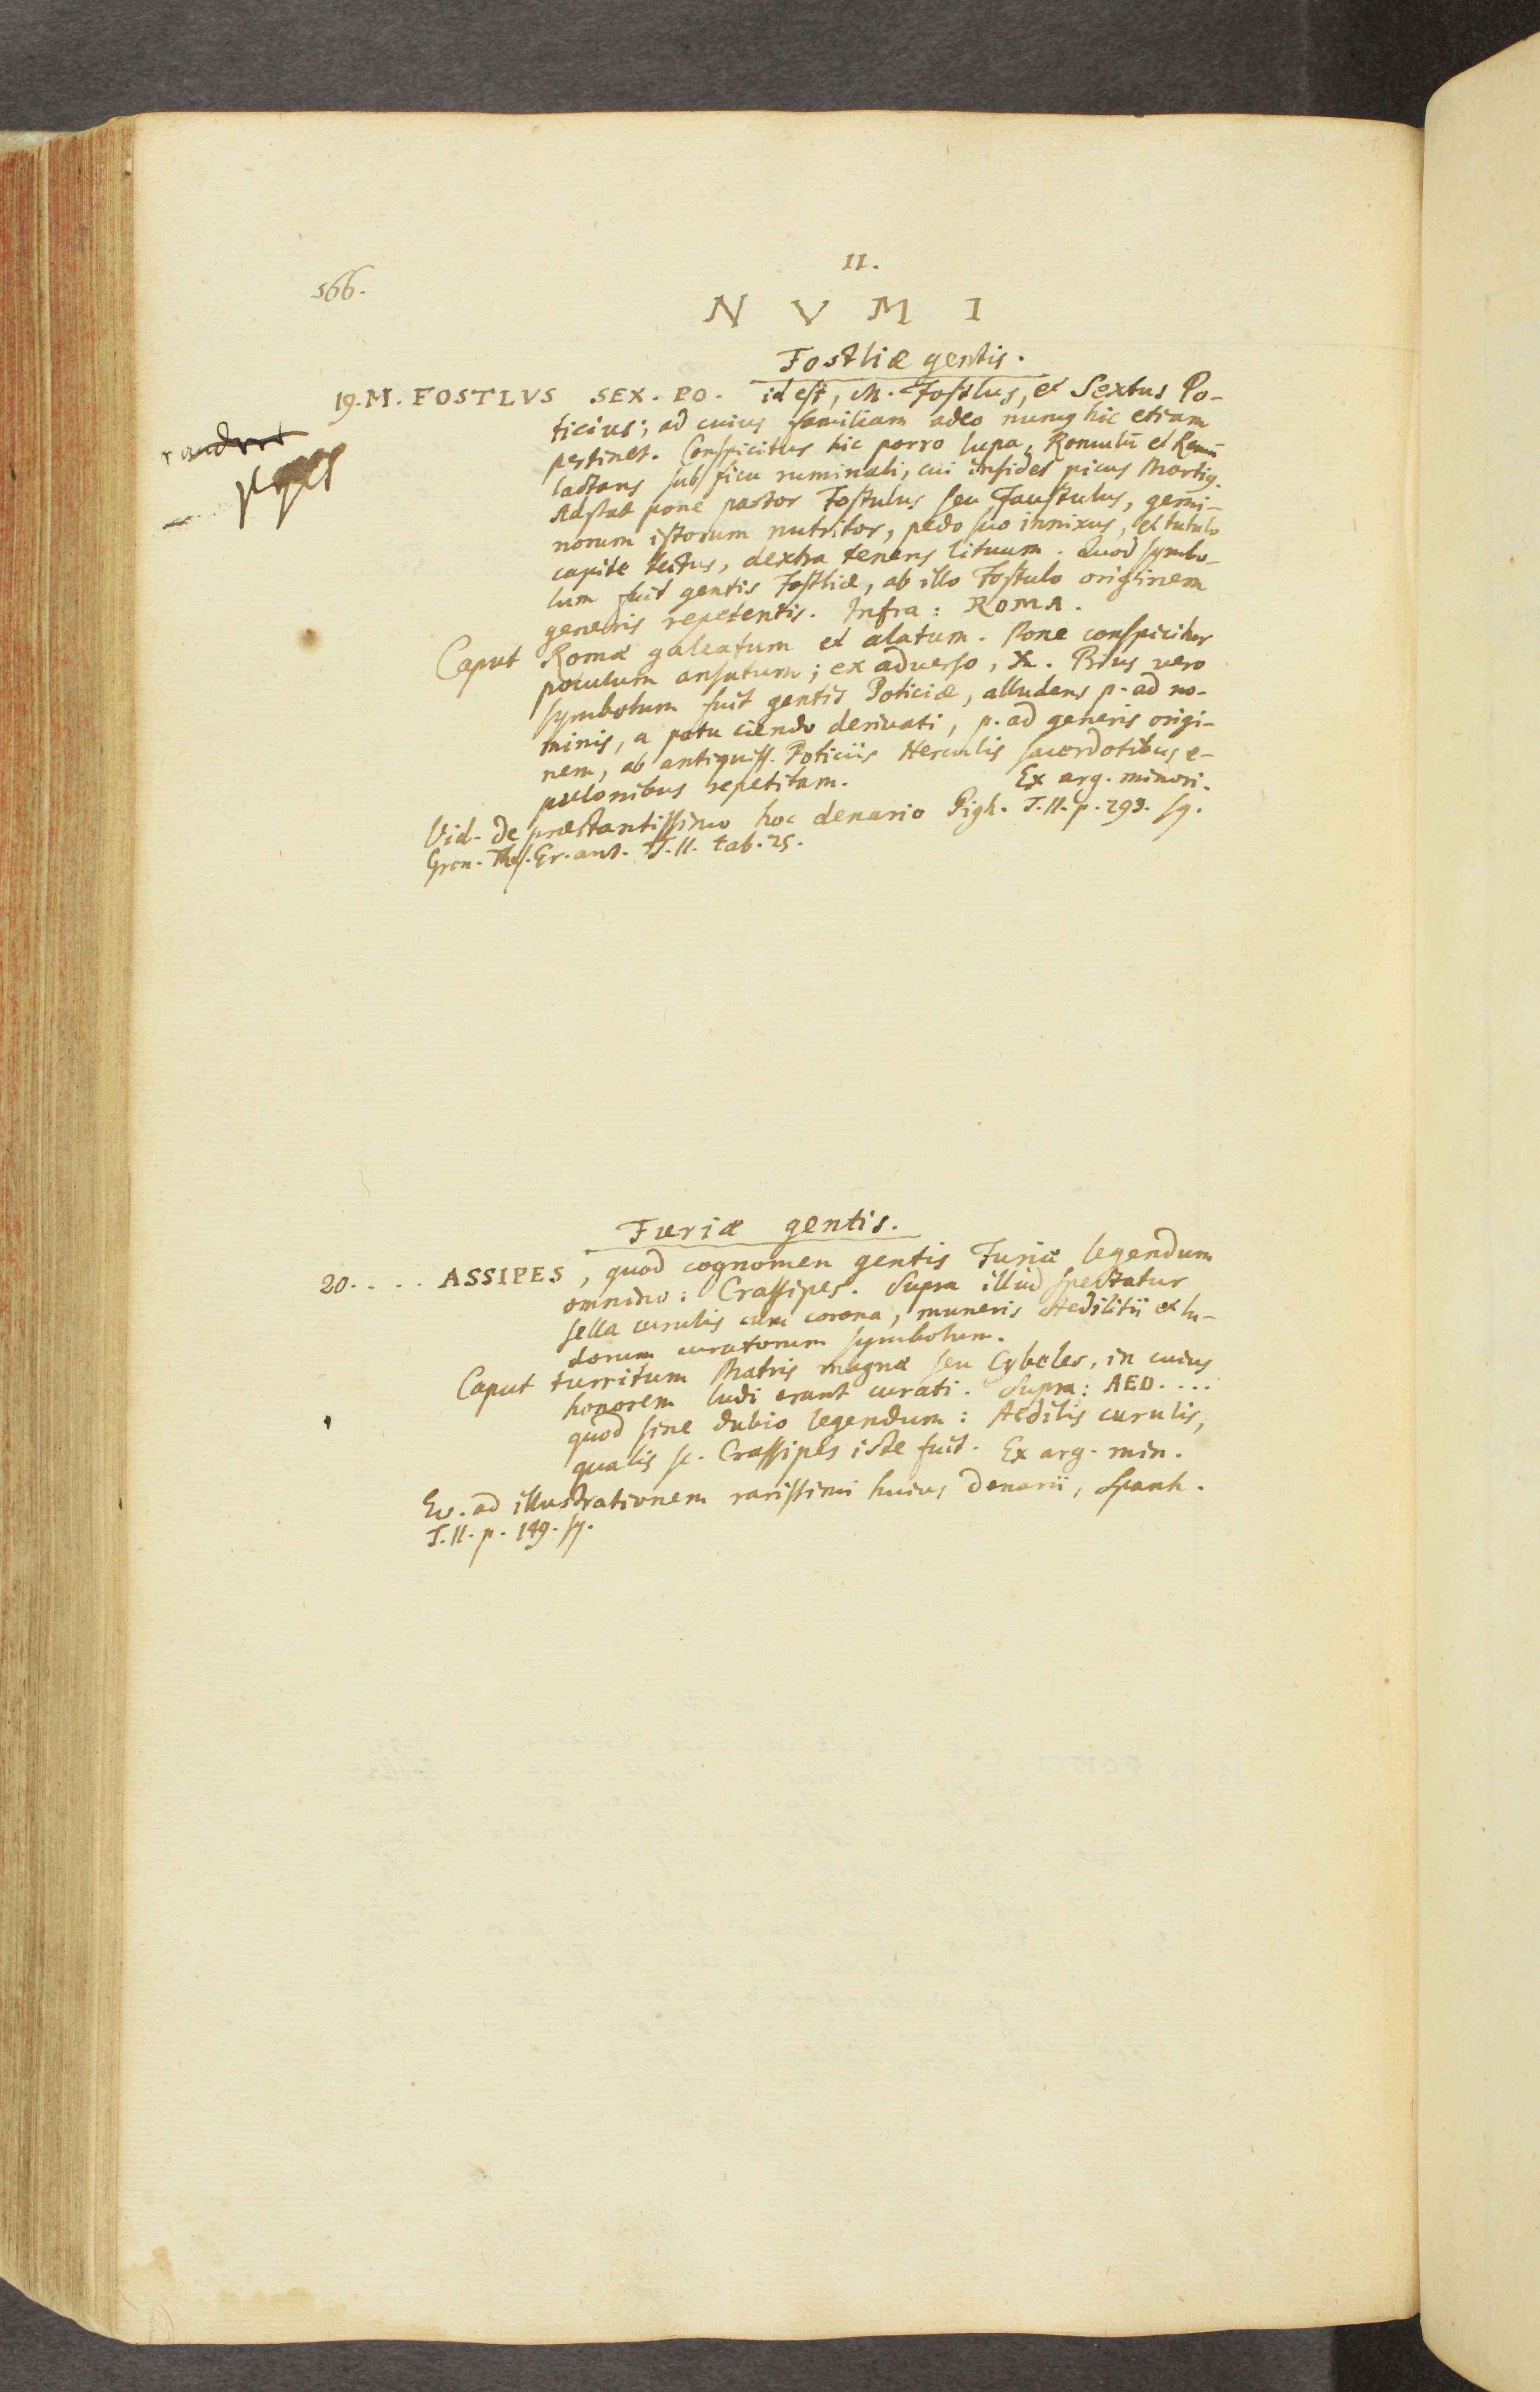 566.
II.
N V M I
Fostliæ gentis.
19. M. FOSTLVS SEX. PO. id est, M. Fostlus, et Sextus Po-
ticius; ad cuius familiam adeo numus hic etiam
pertinet. Conspicitur hic porro lupa, Romulū et Remū
lactans sub ficu ruminali, cui insidet picus Martius.
Adstat pone pastor Fostulus seu Faustulus, gemi-
norum istorum nutritor, pedo suo innixus, et tutulo
capite tectus, dextra tenens lituum. Quod symbo-
lum fuit gentis Fostliæ, ab illo Fostulo originem
generis repetentis. Infra: ROMA.
Caput Romæ galeatum et alatum. Pone conspicitur
poculum ansatum; ex adverso, X. Prius vero
symbolum fuit gentis Poticiæ, alludens p. ad no-
minis, a potu ciendo derivati, p. ad generis origi-
nem, ab antiquiss. Poticiis Herculis sacerdotibus e-
pulonibus repetitam. Ex arg. minori.
Vid. de præstantissimo hoc denario Pigh. T. II. p. 293. sq.
Gron. Thes. Gr. ant. T. II. tab. 25.
Furiæ gentis.
20. . . . ASSIPES, quod cognomen gentis Furiæ legendum
omnino: Crassipes. Supra illud spectatur
sella curulis cum corona, muneris Aedilitii et lu-
dorum curatorum symbolum.
Caput turritum Matris magnæ seu Cybeles, in cuius
honorem ludi erant curati. Supra: AED. . . .
quod sine dubio legendum: Aedilis curulis,
qualis sc. Crassipes iste fuit. Ex arg. min.
Ev. ad illustrationem rarissimi huius denarii, Spanh.
T. II. p. 149. sq.